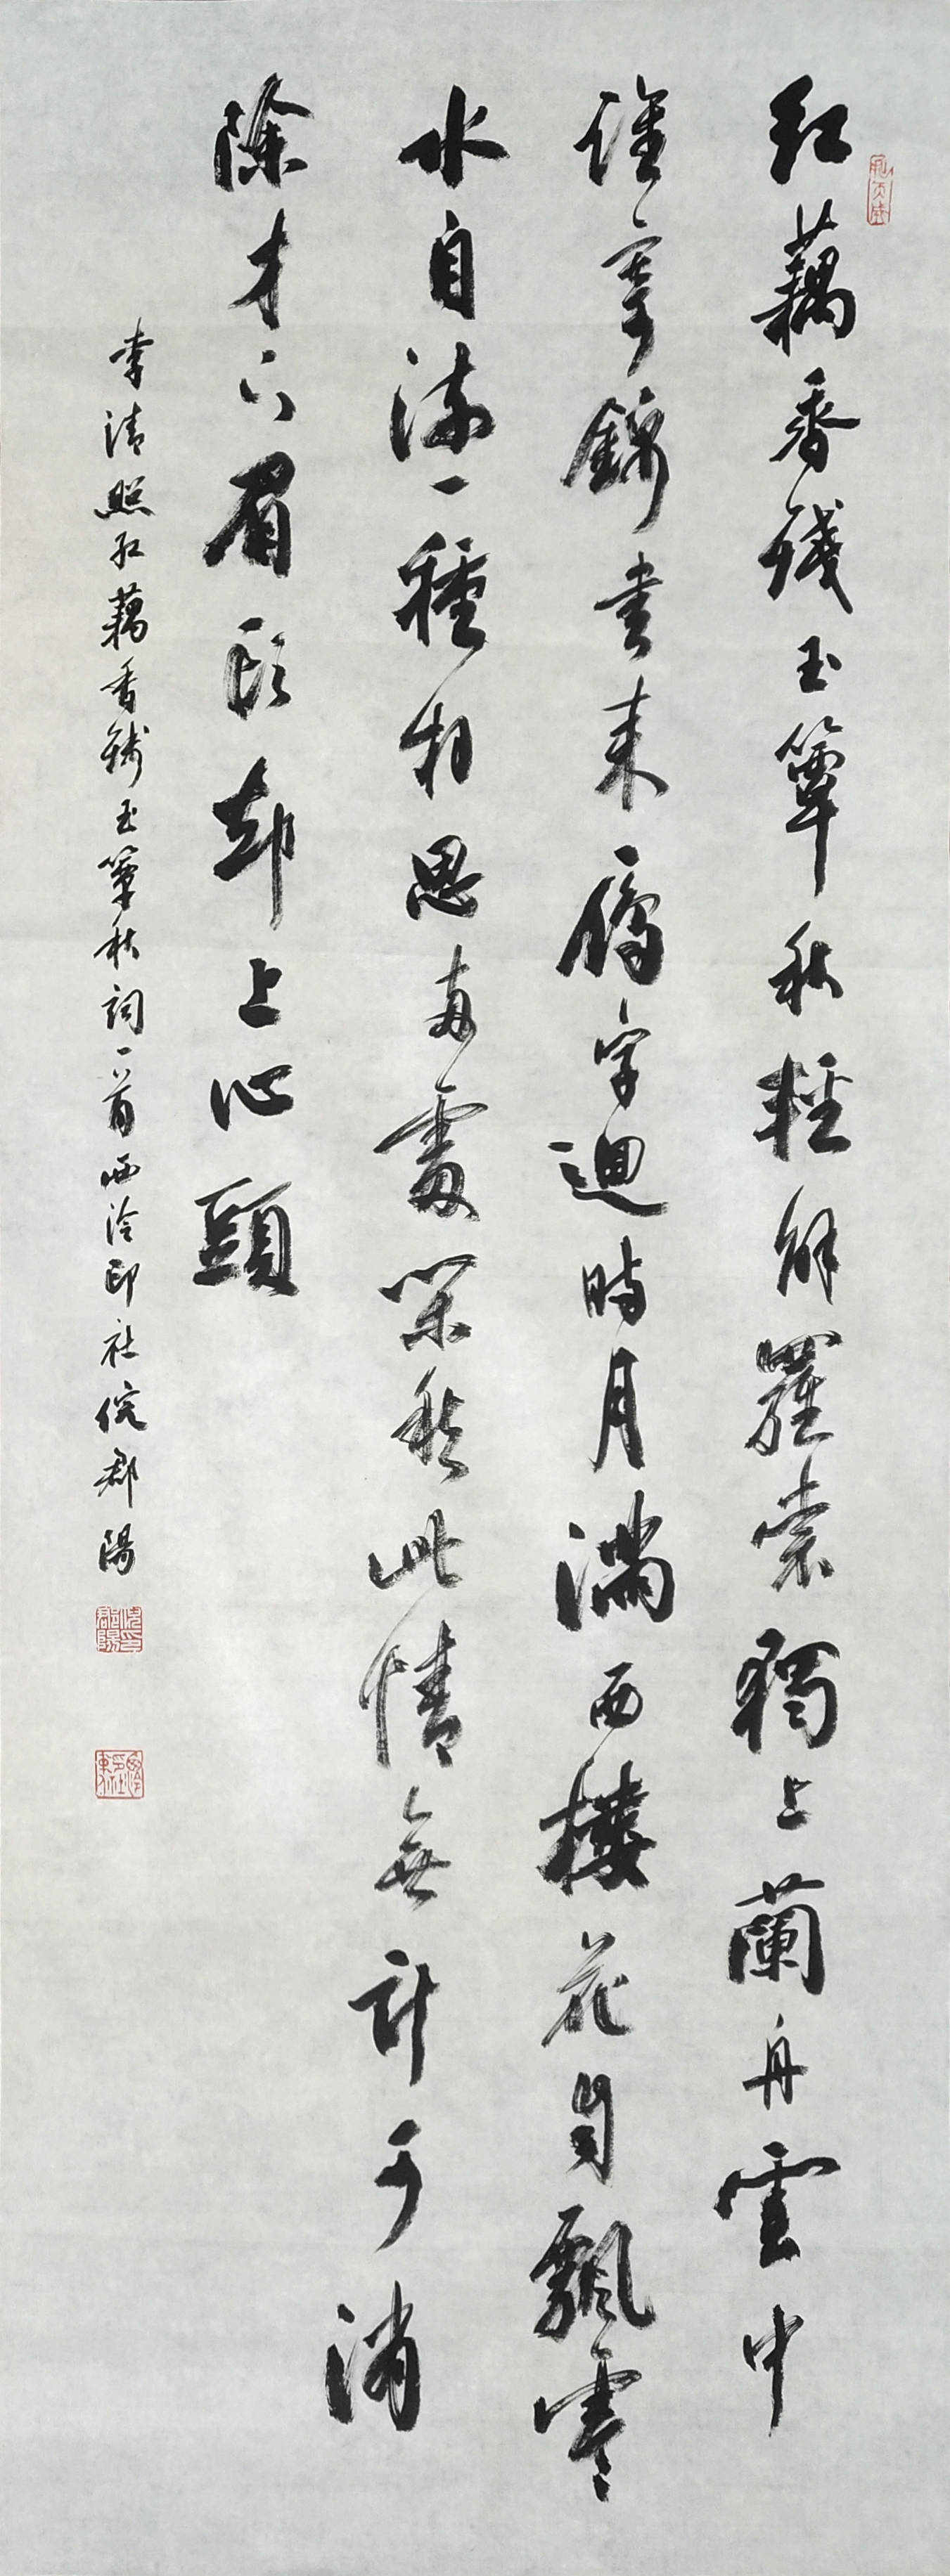 紅藕香殘玉簟秋輕解羅裳獨上蘭舟雲中
誰寄錦書來鴈字迴時月滿西樓花自飄零
水自流一種相思兩處閑愁此情無計可消
除才下眉頭却上心頭
李清照紅藕香殘玉簟秋詞一首西泠印社倪郡陽